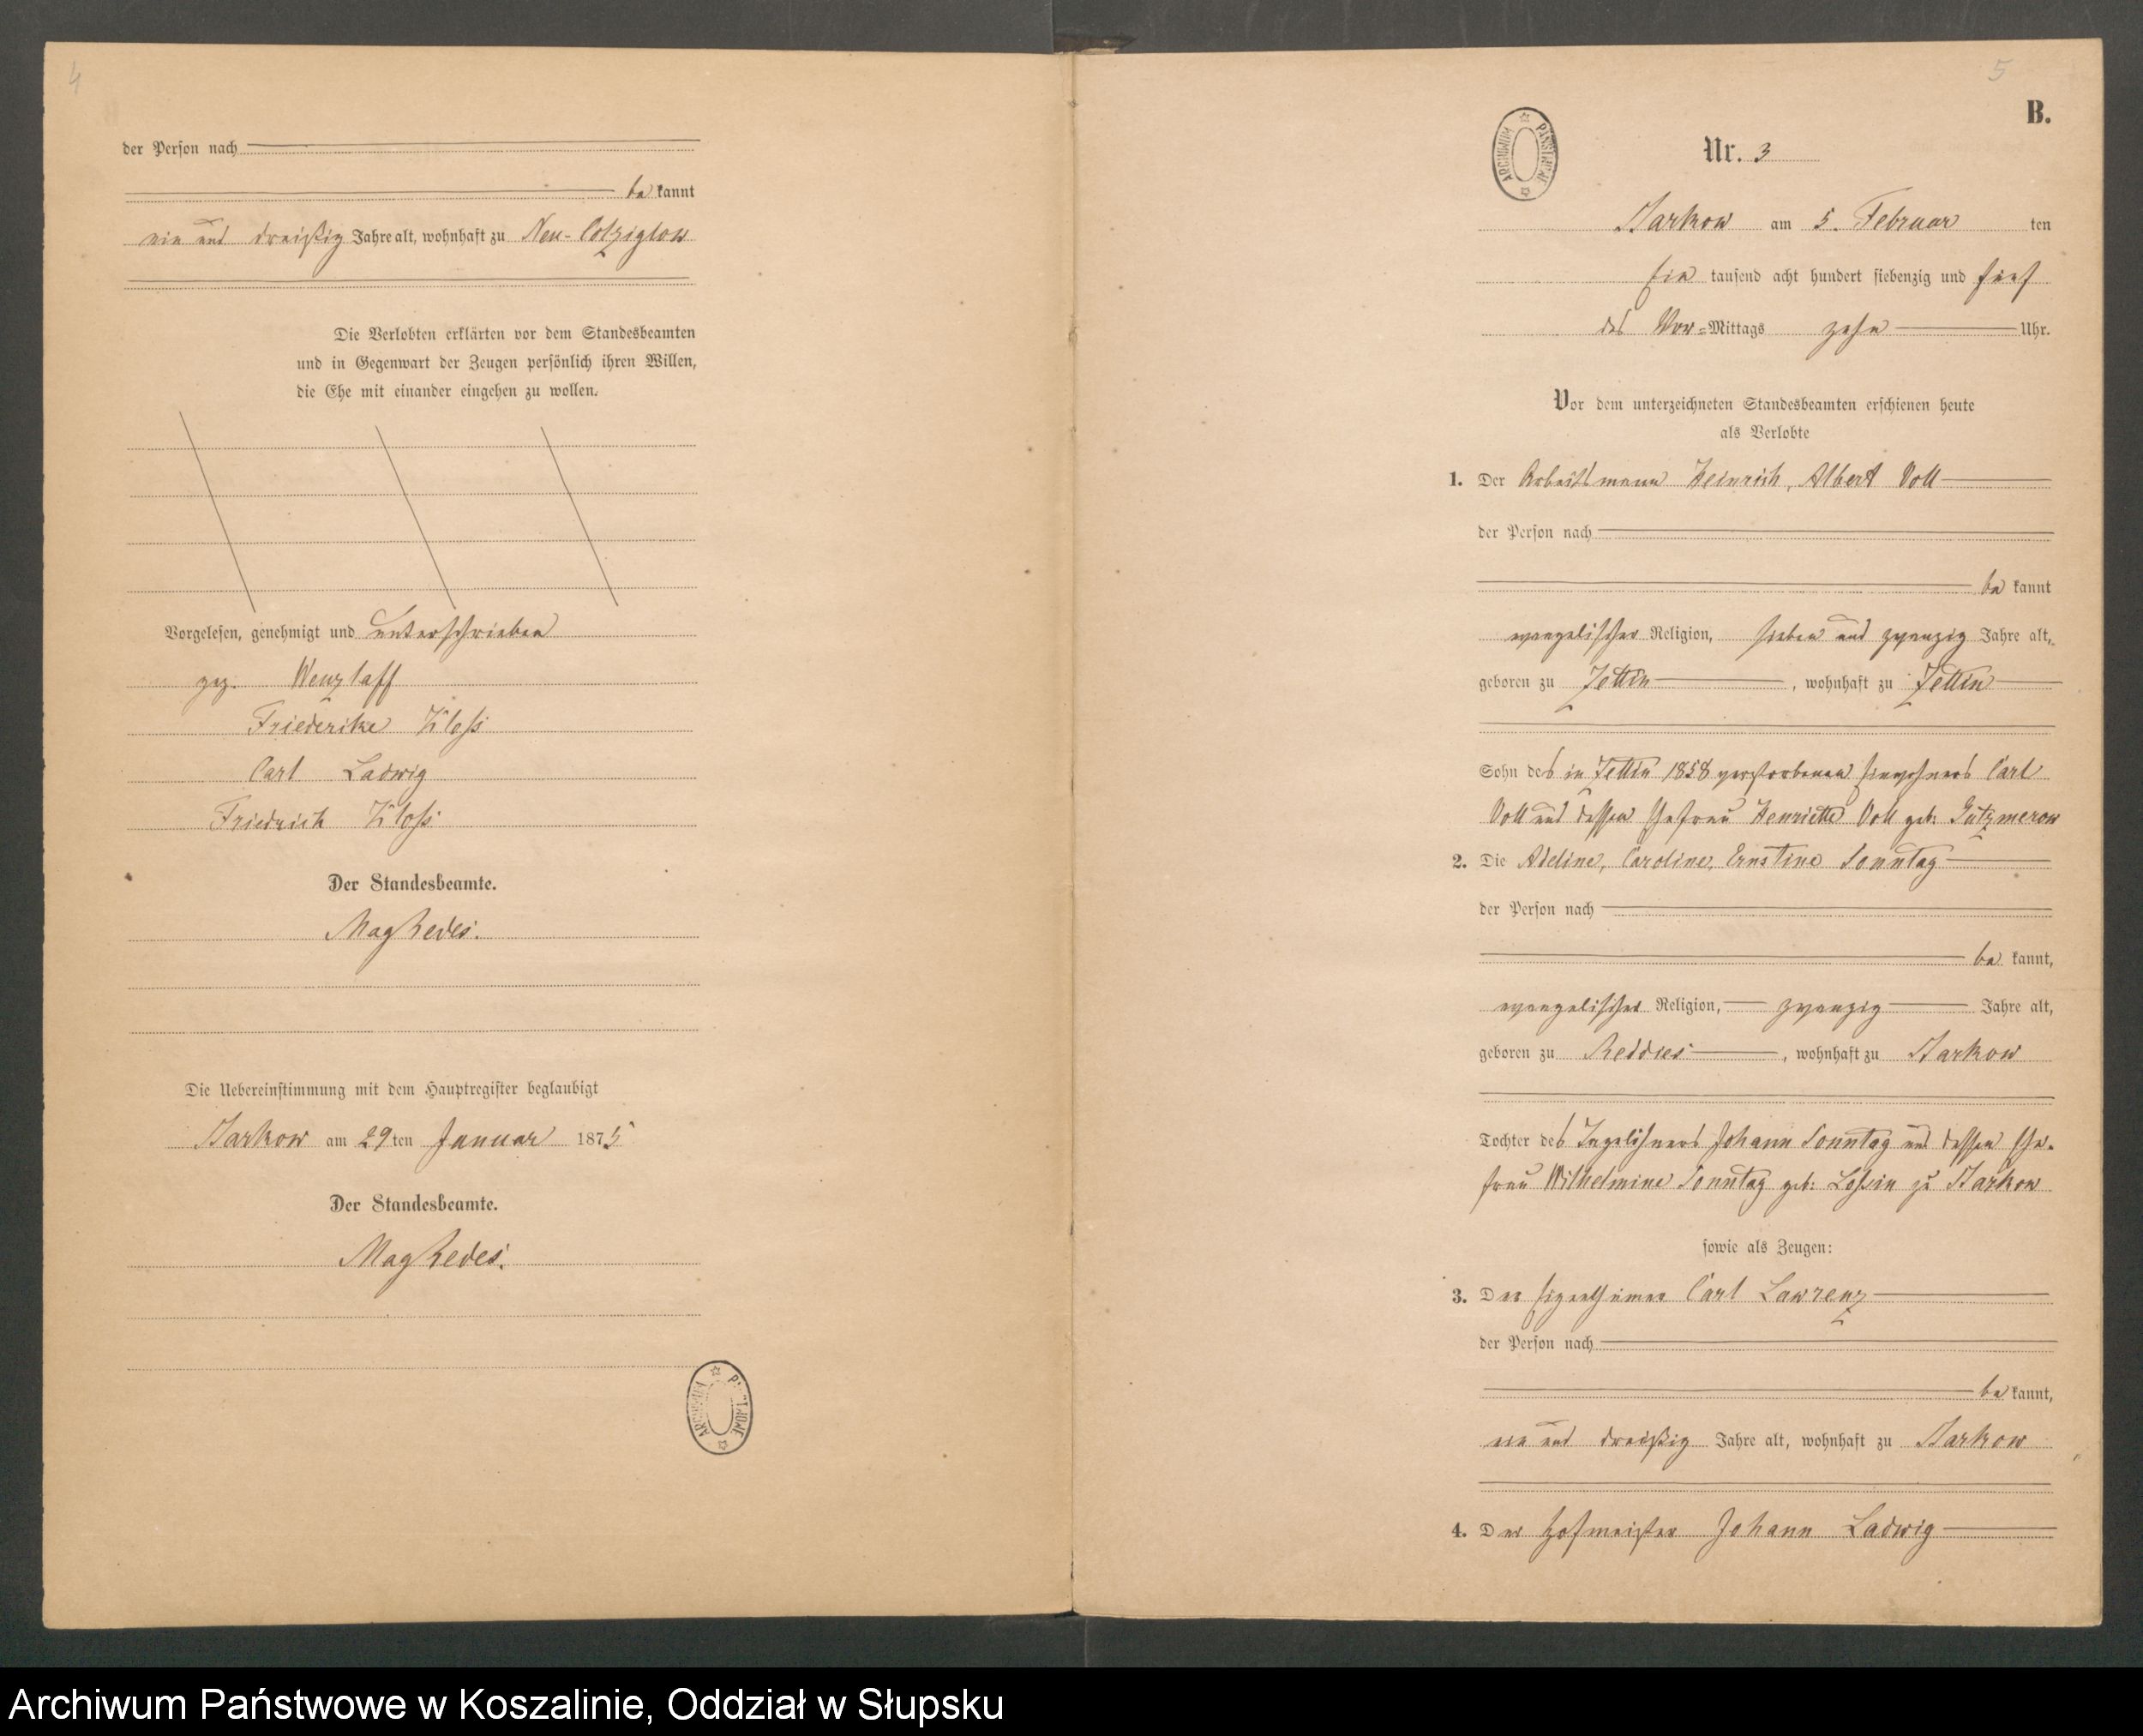 4
der Person nach
be kannt
ein und dreißig Jahre alt, wohnhaft zu Neu-Colziglow
Die Verlobten erklärten vor dem Standesbeamten
und in Gegenwart der Zeugen persönlich ihren Willen,
die Ehe mit einander eingehen zu wollen.
Vorgelesen, genehmigt und unterschrieben
gez. Wenzlaff
Friederike Kloß
Carl Ladwig
Friedrich Kloß
Der Standesbeamte.
Die Uebereinstimmung mit dem Hauptregister beglaubigt
Starkow am 29ten Januar 1875
Der Standesbeamte.
ARCHIWUM PAŃSTWOWE
5
B.
ARCHIWUM PAŃSTWOWE
Nr. 3
Starkow am 5. Februar ten
Ein tausend acht hundert siebenzig und fünf
des Vor=Mittags zehn Uhr.
Vor dem unterzeichneten Standesbeamten erschienen heute
als Verlobte
1. Der Arbeitsmann Heinrich, Albert Voll
der Person nach
be kannt
evangelischer Religion, sieben und zwanzig Jahre alt,
geboren zu Zettin, wohnhaft zu Zettin
Sohn des in Zettin 1858 verstorbenen Einwohners Carl
Voll und dessen Ehefrau Henriette Voll geb: Gützmerow
2. Die Adeline, Caroline, Ernstine Sonntag
der Person nach
be kannt,
evangelischer Religion, zwanzig Jahre alt,
geboren zu Reddies, wohnhaft zu Starkow
Tochter des Tagelöhners Johann Sonntag und dessen Ehe-
frau Wilhelmine Sonntag geb: Loßin zu Starkow
sowie als Zeugen:
3. Der Eigenthümer Carl Lawrenz
der Person nach
be kannt,
ein und dreißig Jahre alt, wohnhaft zu Starkow
4. Der Hofmeister Johann Ladwig
Archiwum Państwowe w Koszalinie, Oddział w Słupsku